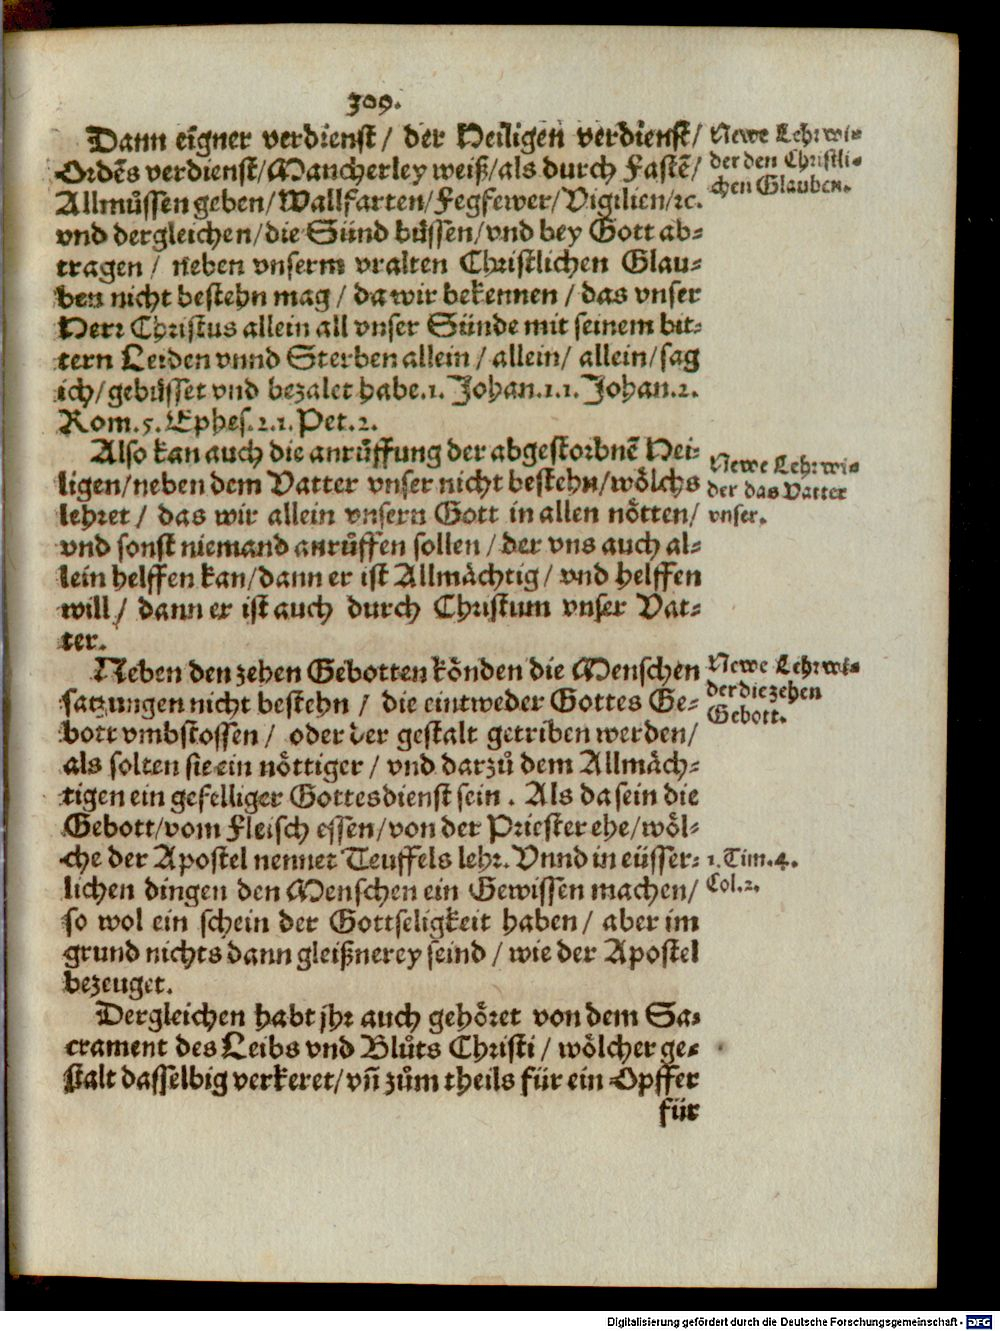 309.
Dann eigner verdienst / der Heiligen verdienst /
Ordēs verdienst / Mancherley weiß / als durch Fastē /
Allmůssen geben / Wallfarten / Fegfewer / Vigilien / ꝛc.
vnd dergleichen / die Sünd büssen / vnd bey Gott ab-
tragen / neben vnserm vralten Christlichen Glau-
ben nicht bestehn mag / da wir bekennen / das vnser
Herr Christus allein all vnser Sünde mit seinem bit-
tern Leiden vnnd Sterben allein / allein / allein / sag
ich / gebüsset vnd bezalet habe. 1. Johan. 1. 1. Johan. 2.
Rom. 5. Ephes. 2. 1. Pet. 2.
Newe Lehr wi-
der den Christli-
chen Glauben.
Also kan auch die anrůffung der abgestorbnē Hei-
ligen / neben dem Vatter vnser nicht bestehn / wölchs
lehret / das wir allein vnsern Gott in allen nötten /
vnd sonst niemand anrůffen sollen / der vns auch al-
lein helffen kan / dann er ist Allmächtig / vnd helffen
will / dann er ist auch durch Christum vnser Vat-
ter.
Newe Lehr wi-
der das Vatter
vnser.
Neben den zehen Gebotten könden die Menschen
satzungen nicht bestehn / die eintweder Gottes Ge-
bott vmbstossen / oder der gestalt getriben werden /
als solten sie ein nöttiger / vnd darzů dem Allmäch-
tigen ein gefelliger Gottesdienst sein. Als da sein die
Gebott / vom Fleisch essen / von der Priester ehe / wöl-
che der Apostel nennet Teuffels lehr. Vnnd in eüsser-
lichen dingen den Menschen ein Gewissen machen /
so wol ein schein der Gottseligkeit haben / aber im
grund nichts dann gleißnerey seind / wie der Apostel
bezeuget.
Newe Lehr wi-
der die zehen
Gebott.
1. Tim. 4.
Col. 2.
Dergleichen habt jhr auch gehöret von dem Sa-
crament des Leibs vnd Blůts Christi / wölcher ge-
stalt dasselbig verkeret / vñ zům theils für ein Opffer
für
Digitalisierung gefördert durch die Deutsche Forschungsgemeinschaft - DFG